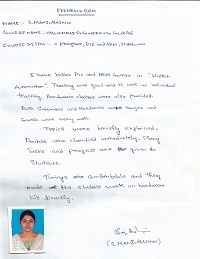 FEEDBACK FORM
NAME :- S.MANJUBASHINI
COLLEGE NAME :- VALLIAMMAI ENGINEERING COLLEGE
COURSE DETAIL :- C program, PIC and ARM, Hardware
I have taken PIC and ARM course in "Wisten
Automation". Teaching was good and it was an individual
teaching. Hardware classes were also provided.
Both Software and Hardware were taught and
Course went very well.
Topics were briefly explained.
Doubts are clarified immediately. Many
Tasks and projects are given to
Students.
Timings are comfortable and They
made us to work on hardware
kit directly.
(S.MANJUBASHINI)